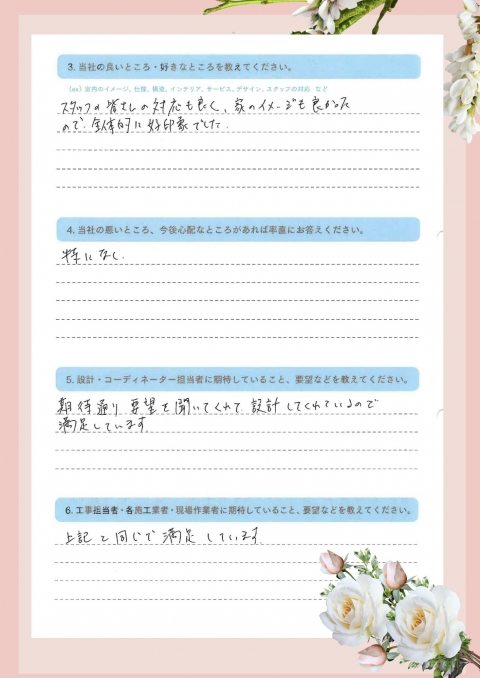 3. 当社の良いところ・好きなところを教えてください。
(ex) 室内のイメージ、仕様、構造、インテリア、サービス、デザイン、スタッフの対応 など
スタッフの皆さんの対応も良く、家のイメージも良かった
ので、全体的に好印象でした.
4. 当社の悪いところ、今後心配なところがあれば率直にお答えください。
特になし.
5. 設計・コーディネーター担当者に期待していること、要望などを教えてください。
期待通り 要望を聞いてくれて 設計してくれているので
満足しています
6. 工事担当者・各施工業者・現場作業者に期待していること、要望などを教えてください。
上記と同じで満足しています